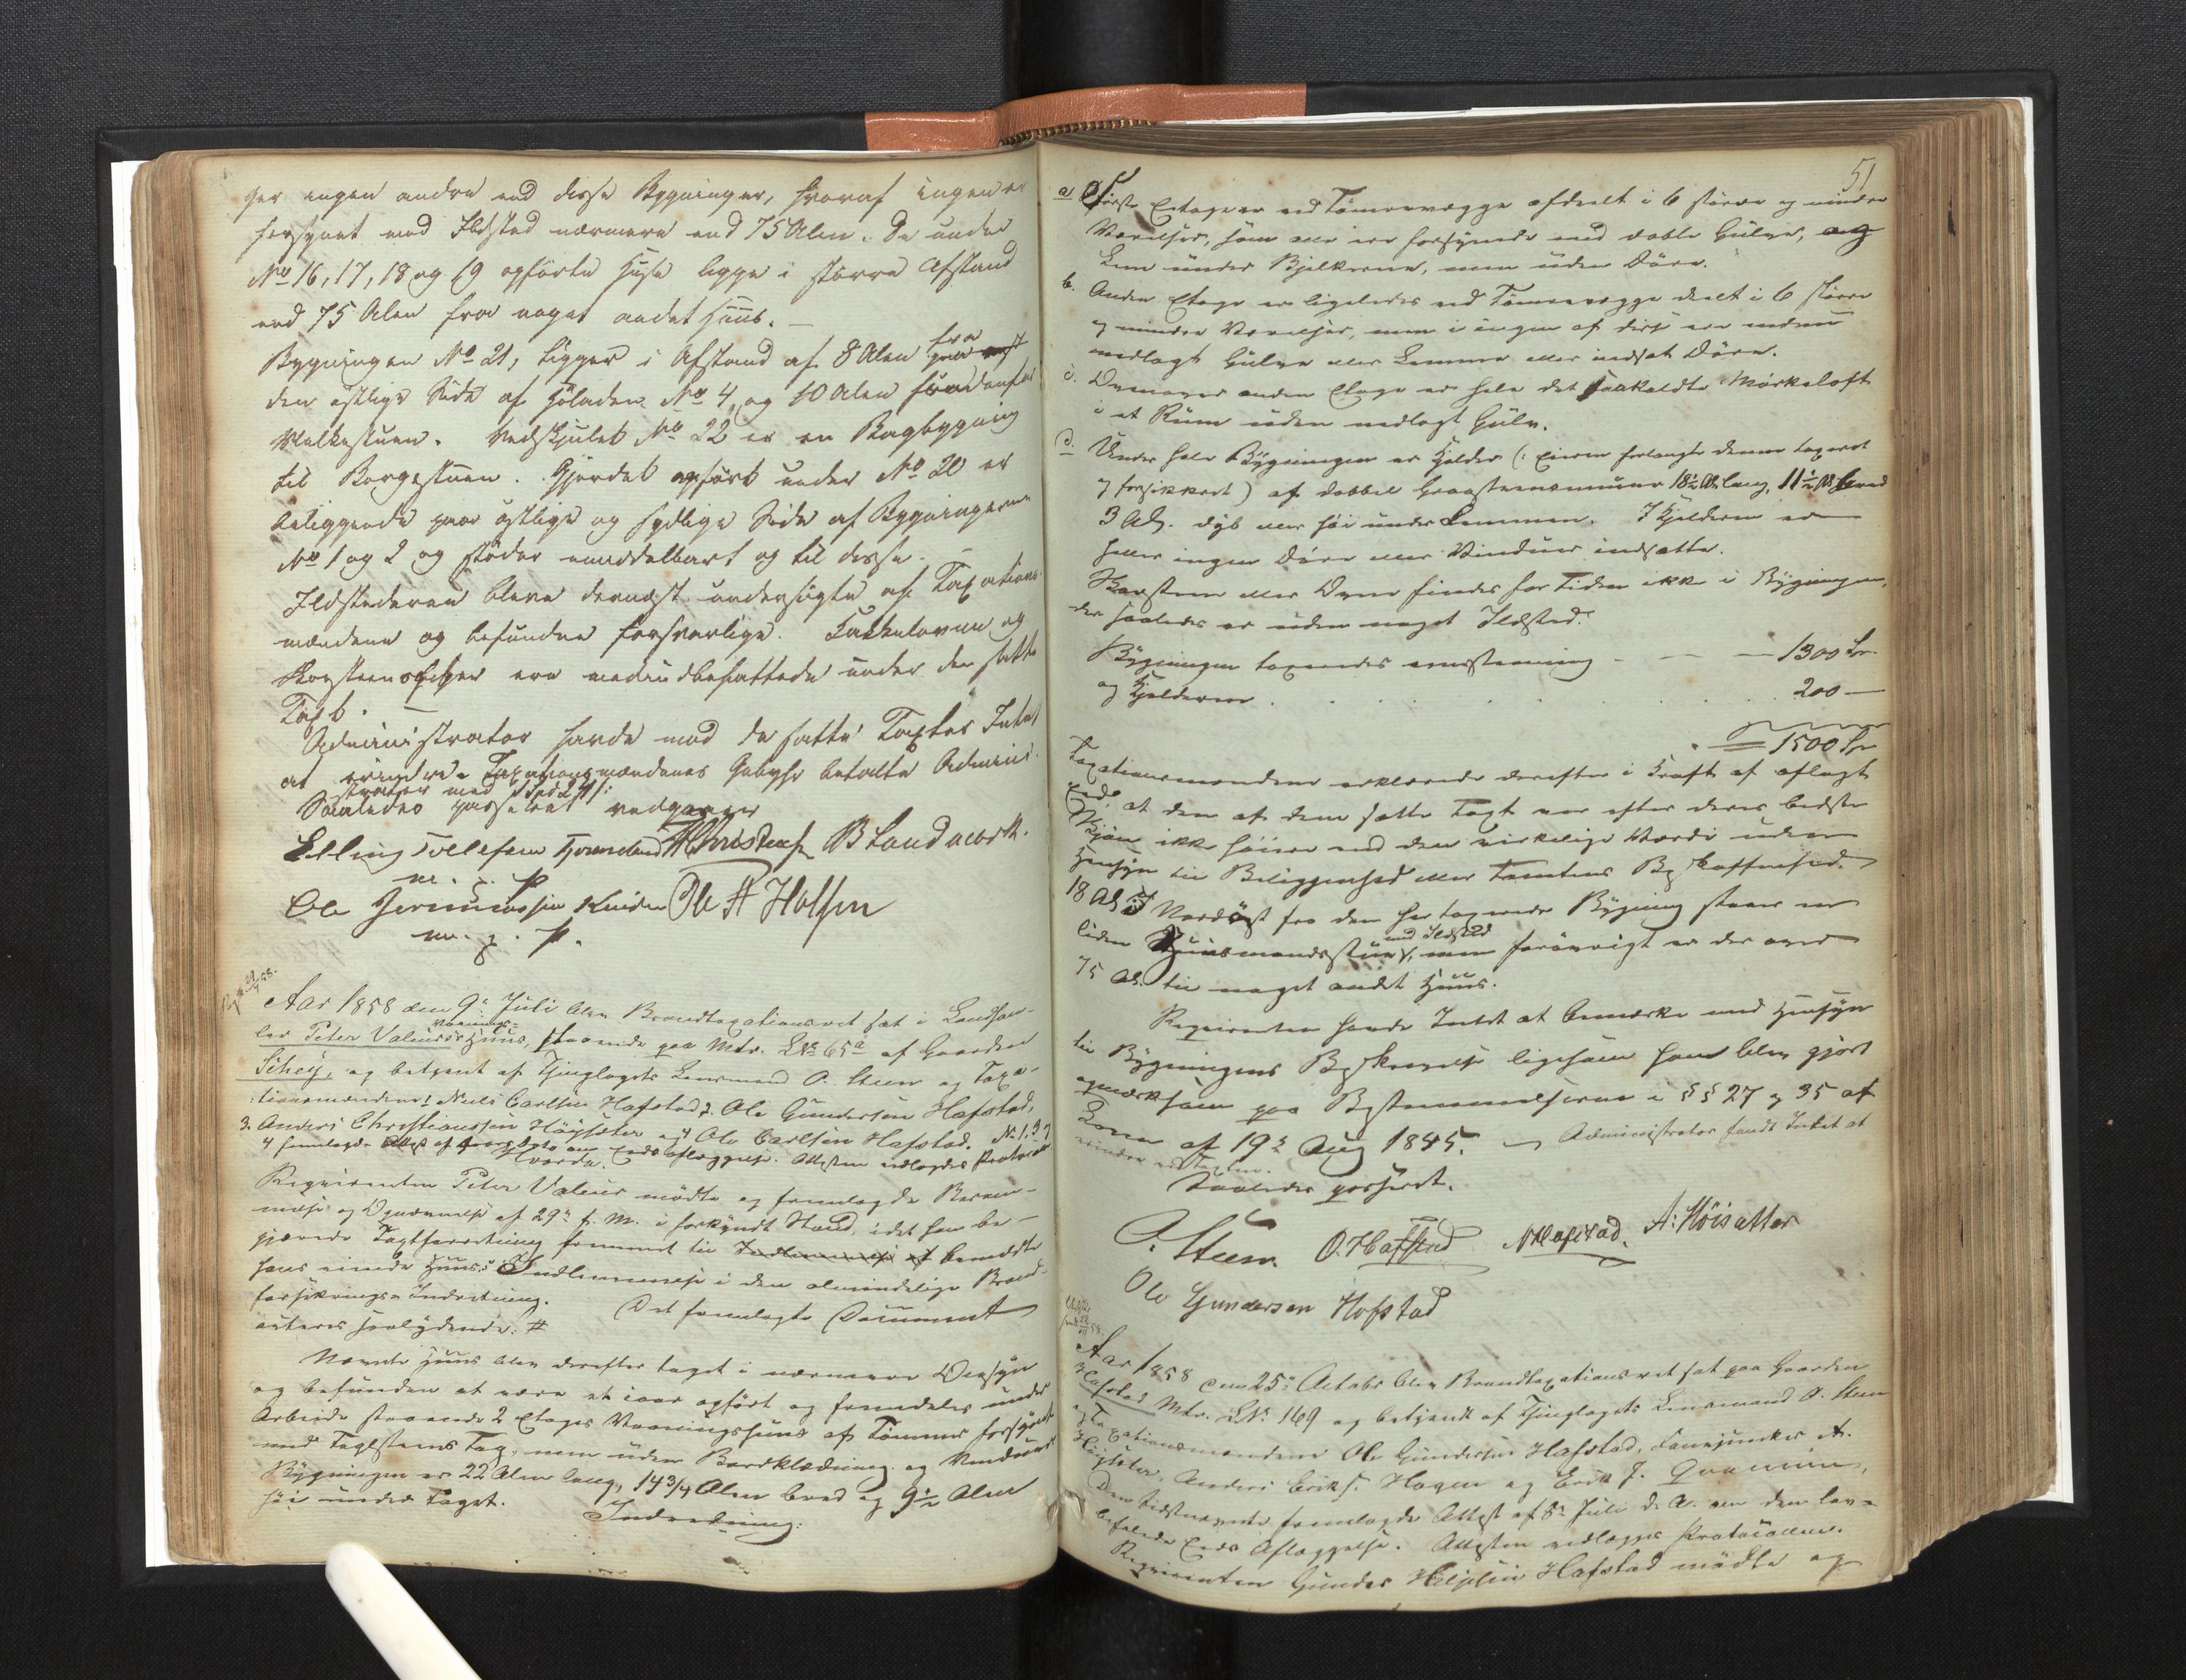 ger ingen andre end disse Bygninger, hvoraf ingen er
forsynet med Ildsted nærmere end 75 Alen. De under
No 16, 17, 18 og 19 opførte Huse ligge i større Afstand
end 75 Alen fra noget andet Huus. —
Bygningen No 21, ligger i Afstand af 8 Alen fra
den østlige Side af Høladen No 4 og 10 Alen
Malkestuen. Vedskjulet No 22 er en Bagbygning
til Borgestuen. Gjerdet opført under No 20 er
beliggende paa østlige og sydlige Side af Bygningerne
No 1 og 2 og støder umiddelbart op til disse. —
Ildstederne bleve dernæst undersøgte af Taxations-
mændene og befundne forsvarlige. Kakkelovne og
Skorsteenspiber ere medindbefattede under den satte
Taxt. —
Administrator havde mod de satte Taxter Intet
at erindre. Taxationsmændenes Gebyhr betalte Admini-
strator med
Saaledes passeret vedgaaer
Elling Tollefsen AChristensen B Landmark.
m. p. P.
Ole Jeremiassen Ole A Holsen
m. p. P.
Aar 1858 den 9de Juli blev Brandtaxationsret sat i Landhand-
ler Peter Valeurs Vaanings Huus, staaende paa Mtr. LNo 65a af Gaarden
Sihey, og betjent af Thinglagets Lensmand O. Steen og Taxa-
tionsmændene 1. Niels Carlsen Hafstad, 2. Ole Gundersen Hafstad,
3. Anders Christiansen Høysæter og 4 Ole Carlsen Hafstad. No 1, 3 og
4 fremlagde Attest af om Eeds Aflæggelse. Attesten vedlægges Protocollen.
Hvorda.
Reqvirenten Peter Valeur mødte og fremlagde Beram-
melse og Opnævnelse af 29de f. M. i forkyndt Stand, idet han be-
gjærede Taxtforretning fremmet til Indlemmelse af benævnte
hans eiende Huus's Indlemmelse i den almindelige Brand-
forsikrings-Indretning. Det fremlagte Document
acteres saalydende: #
Nævnte Huus blev derefter taget i nærmere Øiesyn
og befunden at være et iaar opført og fremdeles under
Arbeide staaende 2 Etages Vaaningshuus af Tømmer forsynet
med Taglsteens Tag, men uden Bordklædning og Vinduer.
Bygningen er 22 Alen lang, 14 3/4 Alen bred og 9 1/2 Alen
høi under Taget.
Indretning:
51
a Første Etage er ved Tømmervægge afdeelt i 6 større og mindre
Værelser, som alle ere forsynede med doble Gulve, og
Lem under Bjelkerne, men uden Døre.
b. Anden Etage er ligeledes ved Tømmervægge deelt i 6 større
og mindre Værelser, men i ingen af disse ere endnu
nedlagt Gulve eller Lemme eller indsat Døre.
c. Ovenover anden Etage er hele det saakaldte Mørkeloft
i et Rum uden nedlagt Gulv.
d. Under hele Bygningen er Kjelder (: Eieren forlangte denne taxeret
og forsikkret) af dobbel Graasteensmuur 18 1/2 Al. lang, 11 1/2 Al bred
3 Al. dyb eller høi under Lemmen. I Kjelderen er
heller ingen Døre eller Vinduer indsatte.
Skorsteen eller Ovne findes for Tiden ikke i Bygningen,
der saaledes er uden noget Ildsted.
Bygningen taxeredes eensstemmig — — 1300 Spd
og Kjelderen . . . . . 200 —
= 1500 Spd
Taxationsmændene erklærede derefter i Kraft af aflagt
Eed, at den af dem satte Taxt var efter deres bedste
Skjøn ikke høiere end den virkelige Værdi uden
Hensyn til Beliggenhed eller Tomtens Beskaffenhed.
18 Al. i Nordøst fra den her taxerede Bygning staaer en
liden Huusmandsstue, med Ildsted men forøvrigt er der over
75 Al. til noget andet Huus.
Reqvirenten havde Intet at bemærke med Hensyn
til Bygningens Beskrivelse ligesom han blev gjort
opmærksom paa Bestemmelserne i §§ 27 og 35 af
Loven af 19de Aug 1845. — Administrator fandt Intet at
erindre ved Taxten.
Saaledes passeret.
O. Steen. O. Hafstad NHafstad. A: Höisætter
Ole Gundersen Hofstad
Aar 1858 den 25de Octobr blev Brandtaxationsret sat paa Gaarden
Hafstad Mtr. LNo 169 og betjent af Thinglagets Lensmand O. Steen
og Taxationsmændene Ole Gundersen Hafstad, A.
Høysæter, Anders Eriks. Hagen og Erik J.
Den sidstnævnte fremlagde Attest af 8de Juli d. A. om den lov-
befalede Eeds Aflæggelse. Attesten vedlægges Protocollen.
Reqvirenten Gunder Hafstad mødte og